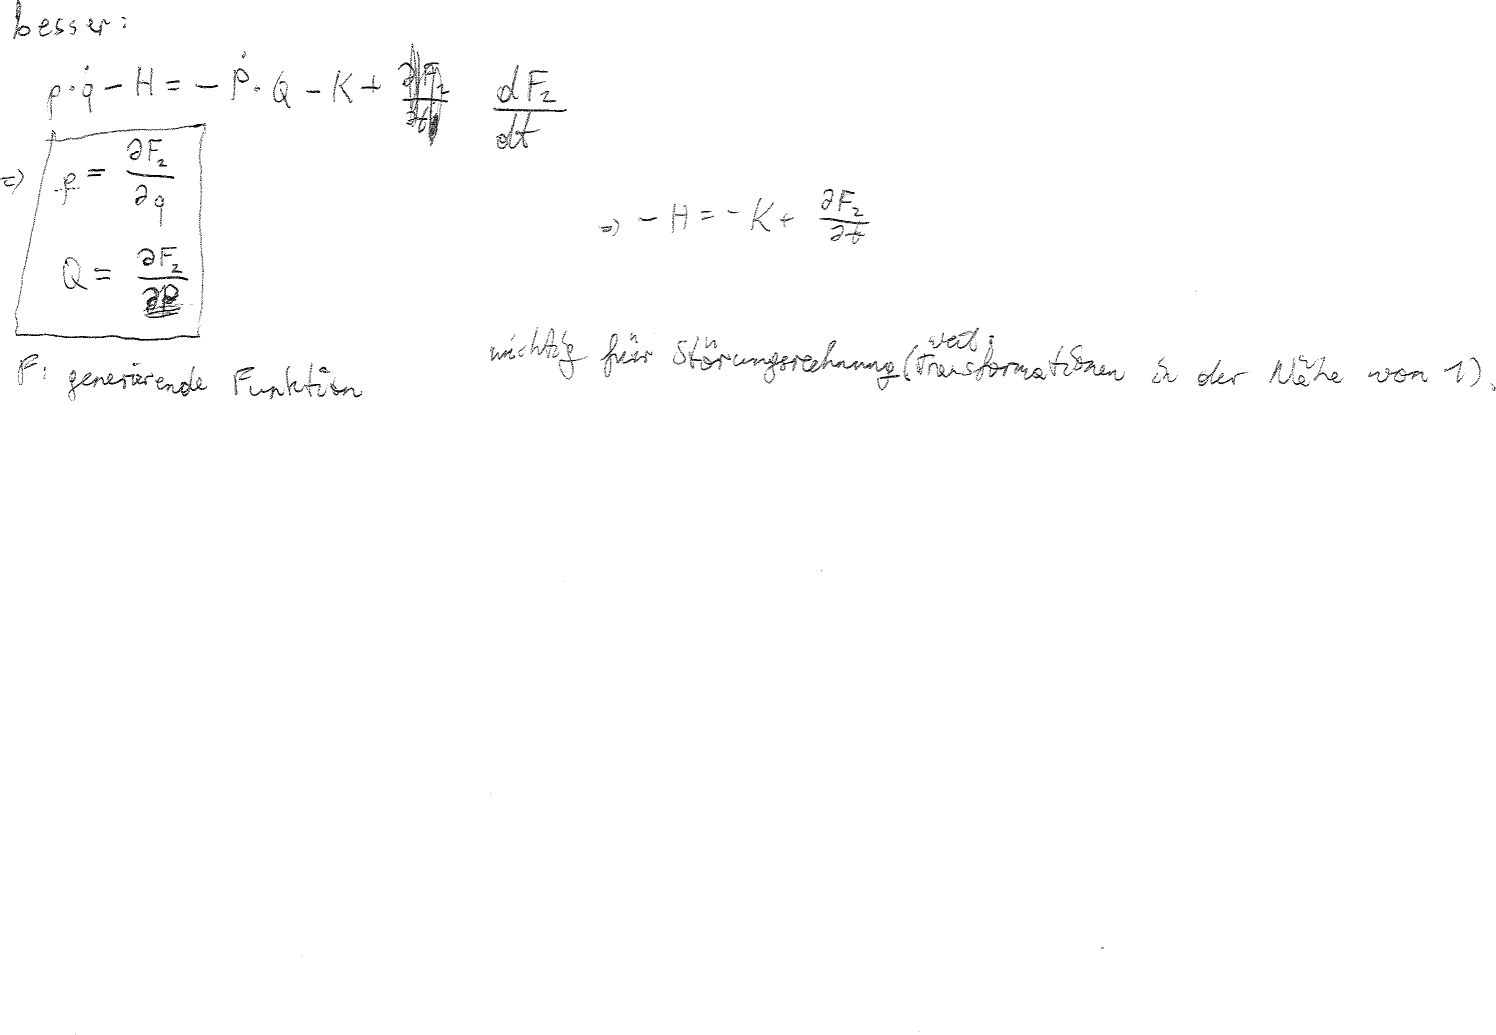 besser:
p · q̇ − H = − Ṗ · Q − K + dF₂/dt
⇒ p = ∂F₂/∂q
⇒ − H = − K + ∂F₂/∂t
Q = ∂F₂/∂P
F: generierende Funktion
wichtig für Störungsrechnung (weil: Transformationen in der Nähe von 1).